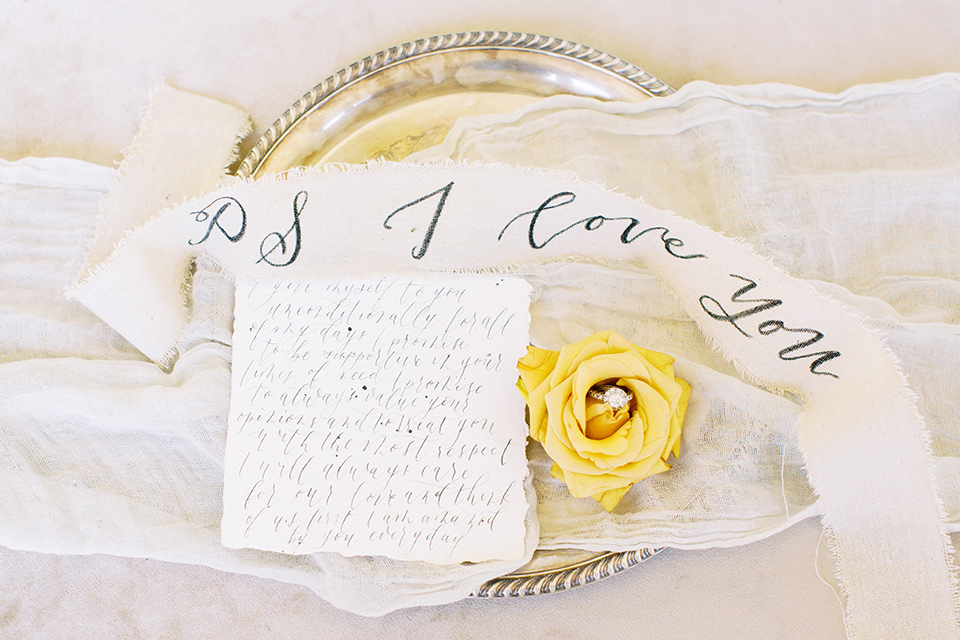 PS I love you
I give myself to you
unconditionally for all
of my days I promise
to be supportive in your
times of need I promise
to always value your
opinions and to treat you
with the most respect
I will always care
for our love and think
of us first I am amazed
by you everyday